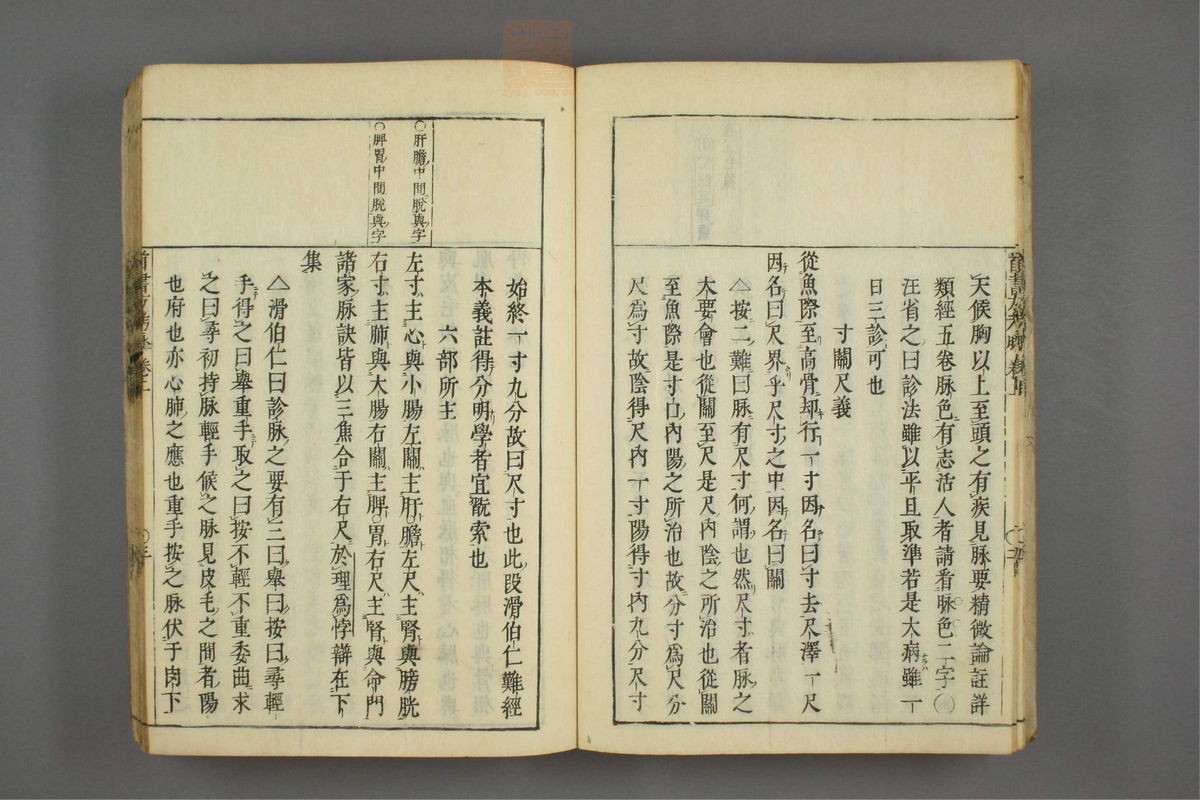 天候胸以上至頭之有疾見脉要精微論註詳
類經五卷脉色有志活人者請看脉色二字〇
汪省之曰診法雖以平旦取準若是大病雖一
日三診可也
寸關尺義
從魚際至高骨却行一寸因名曰寸去尺澤一尺
因名曰尺界乎尺寸之中因名曰關
△按二難曰脉有尺寸何謂也然尺寸者脉之
大要會也從關至尺是尺內陰之所治也從關
至魚際是寸口內陽之所治也故分寸爲尺分
尺爲寸故陰得尺內一寸陽得寸內九分尺寸
始終一寸九分故曰尺寸也此段滑伯仁難經
本義註得分明學者宜翫索也
六部所主
〇肝膽中間脫與字
左寸主心與小腸左關主肝〇膽左尺主腎與膀胱
〇脾胃中間脫與字
右寸主肺與大腸右關主脾〇胃右尺主腎與命門
諸家脉訣皆以三焦合于右尺於理爲悖辯在下
集
△滑伯仁曰診脉之要有三曰舉曰按曰尋輕
手得之曰舉重手取之曰按不輕不重委曲求
之曰尋初持脉輕手候之脉見皮毛之間者陽
也府也亦心肺之應也重手按之脉伏于肉下